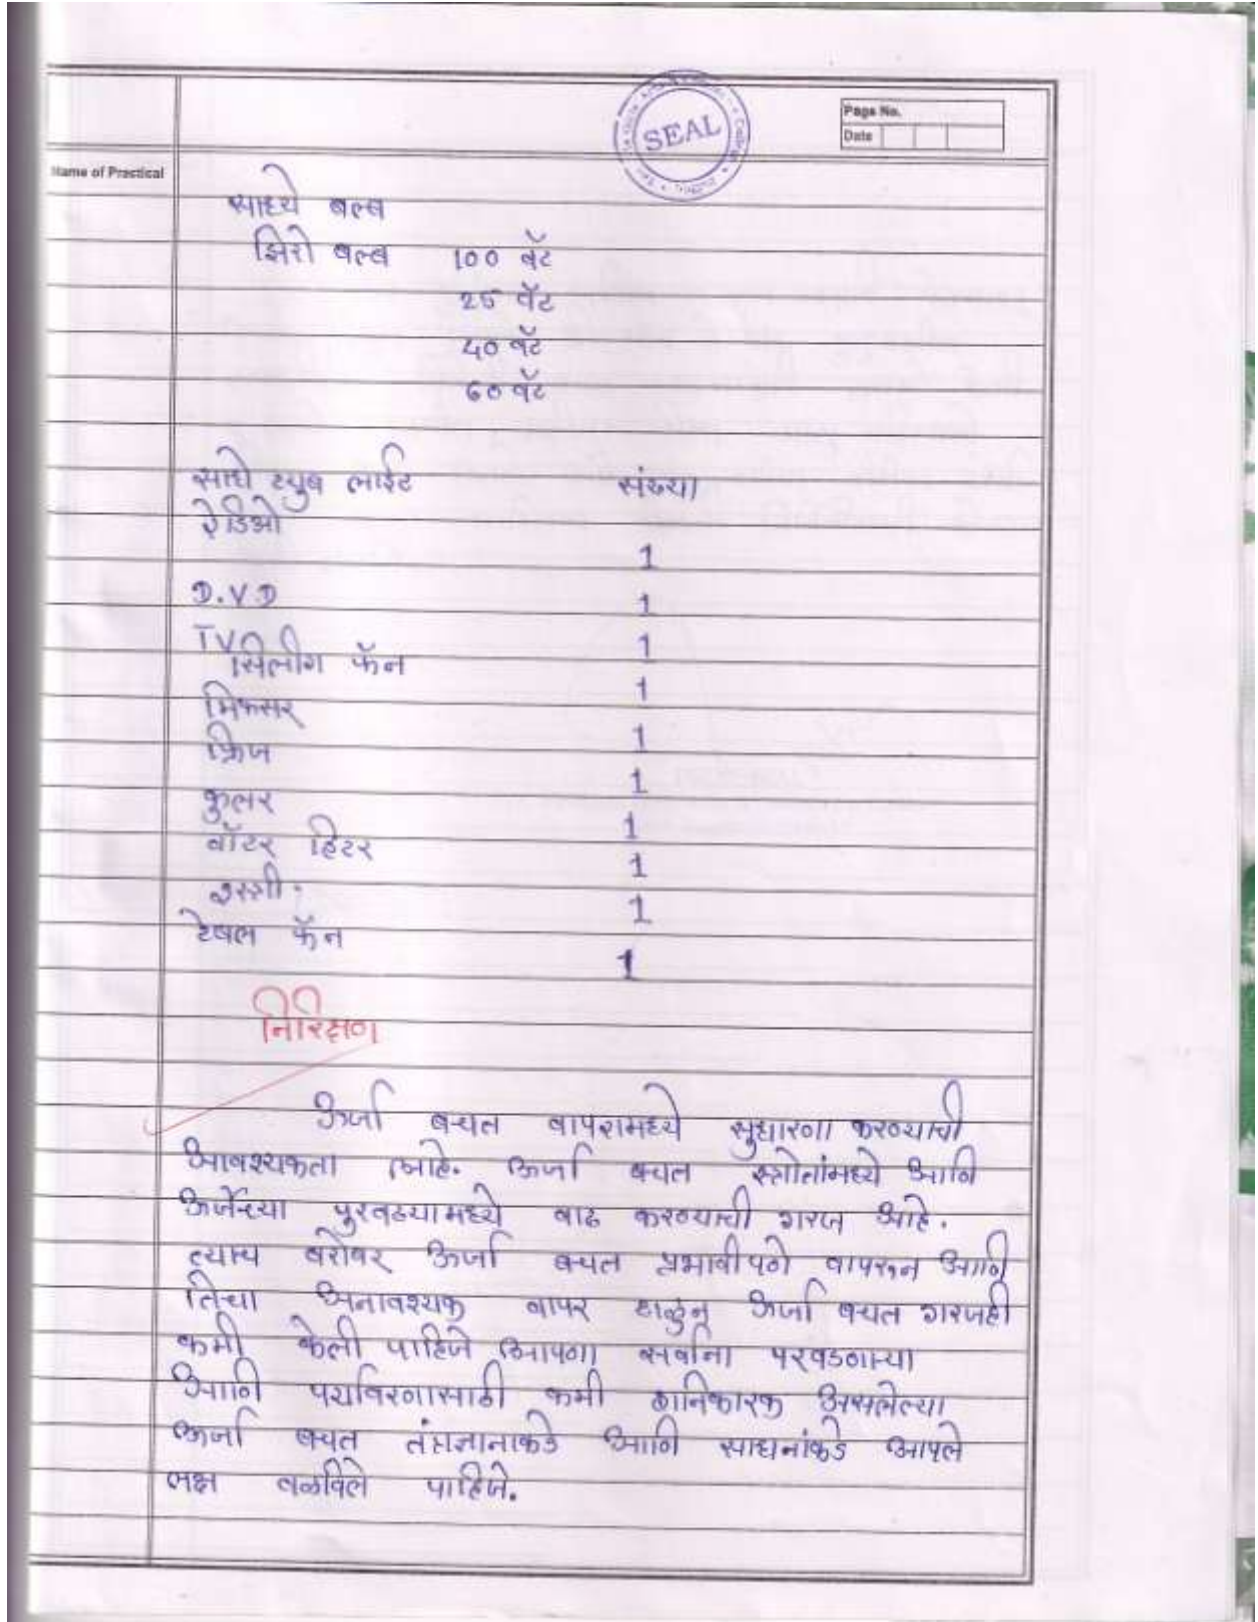 SEAL
Page No.
Date
Name of Practical
साध्ये बल्ब
झिरो बल्ब 100 वॅट
25 वॅट
40 वॅट
60 वॅट
साधे ट्युब लाईट संख्या
रेडिओ
1
D.V.D 1
TV 1
सिलींग फॅन
1
मिक्सर
फ्रिज 1
1
कुलर
वॉटर हिटर 1
1
इस्त्री.
1
टेबल फॅन
1
निरिक्षण
ऊर्जा बचत वापरामध्ये सुधारणा करण्याची
आवश्यकता आहे. ऊर्जा बचत स्त्रोतांमध्ये आणि
ऊर्जेच्या पुरवठ्यामध्ये वाढ करण्याची गरज आहे.
त्याच बरोबर ऊर्जा बचत प्रभावीपणे वापरून आणि
तिचा अनावश्यक वापर टाळुन ऊर्जा बचत गरजही
कमी केली पाहिजे आपणा सर्वांना परवडणाऱ्या
आणि पर्यावरणासाठी कमी हानिकारक असलेल्या
ऊर्जा बचत तंत्रज्ञानाकडे आणि साधनांकडे आपले
लक्ष वळविले पाहिजे.